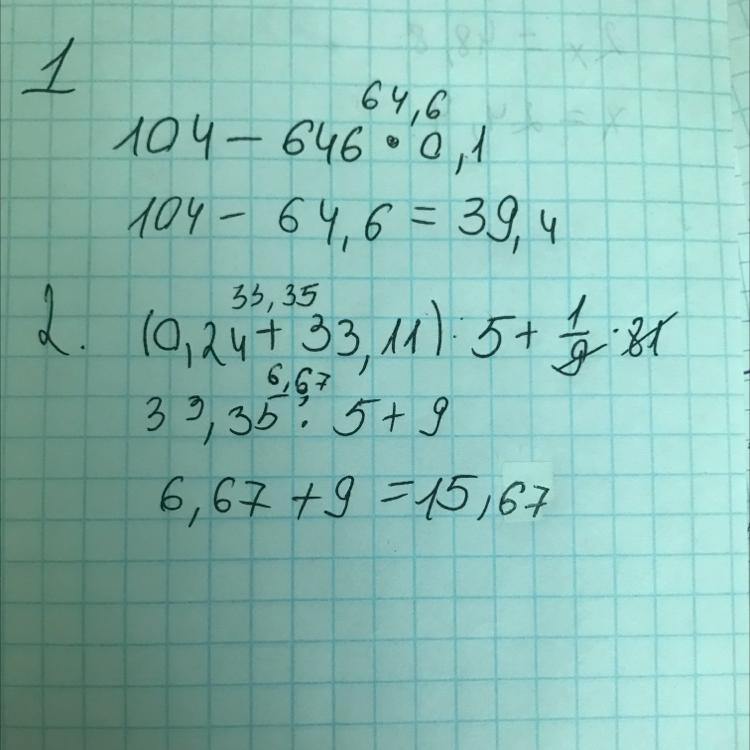 1
64,6
104 - 646 · 0,1
104 - 64,6 = 39,4
33,35
2. (0,24 + 33,11) : 5 + 1/9 · 81
6,67
33,35 : 5 + 9
6,67 + 9 = 15,67